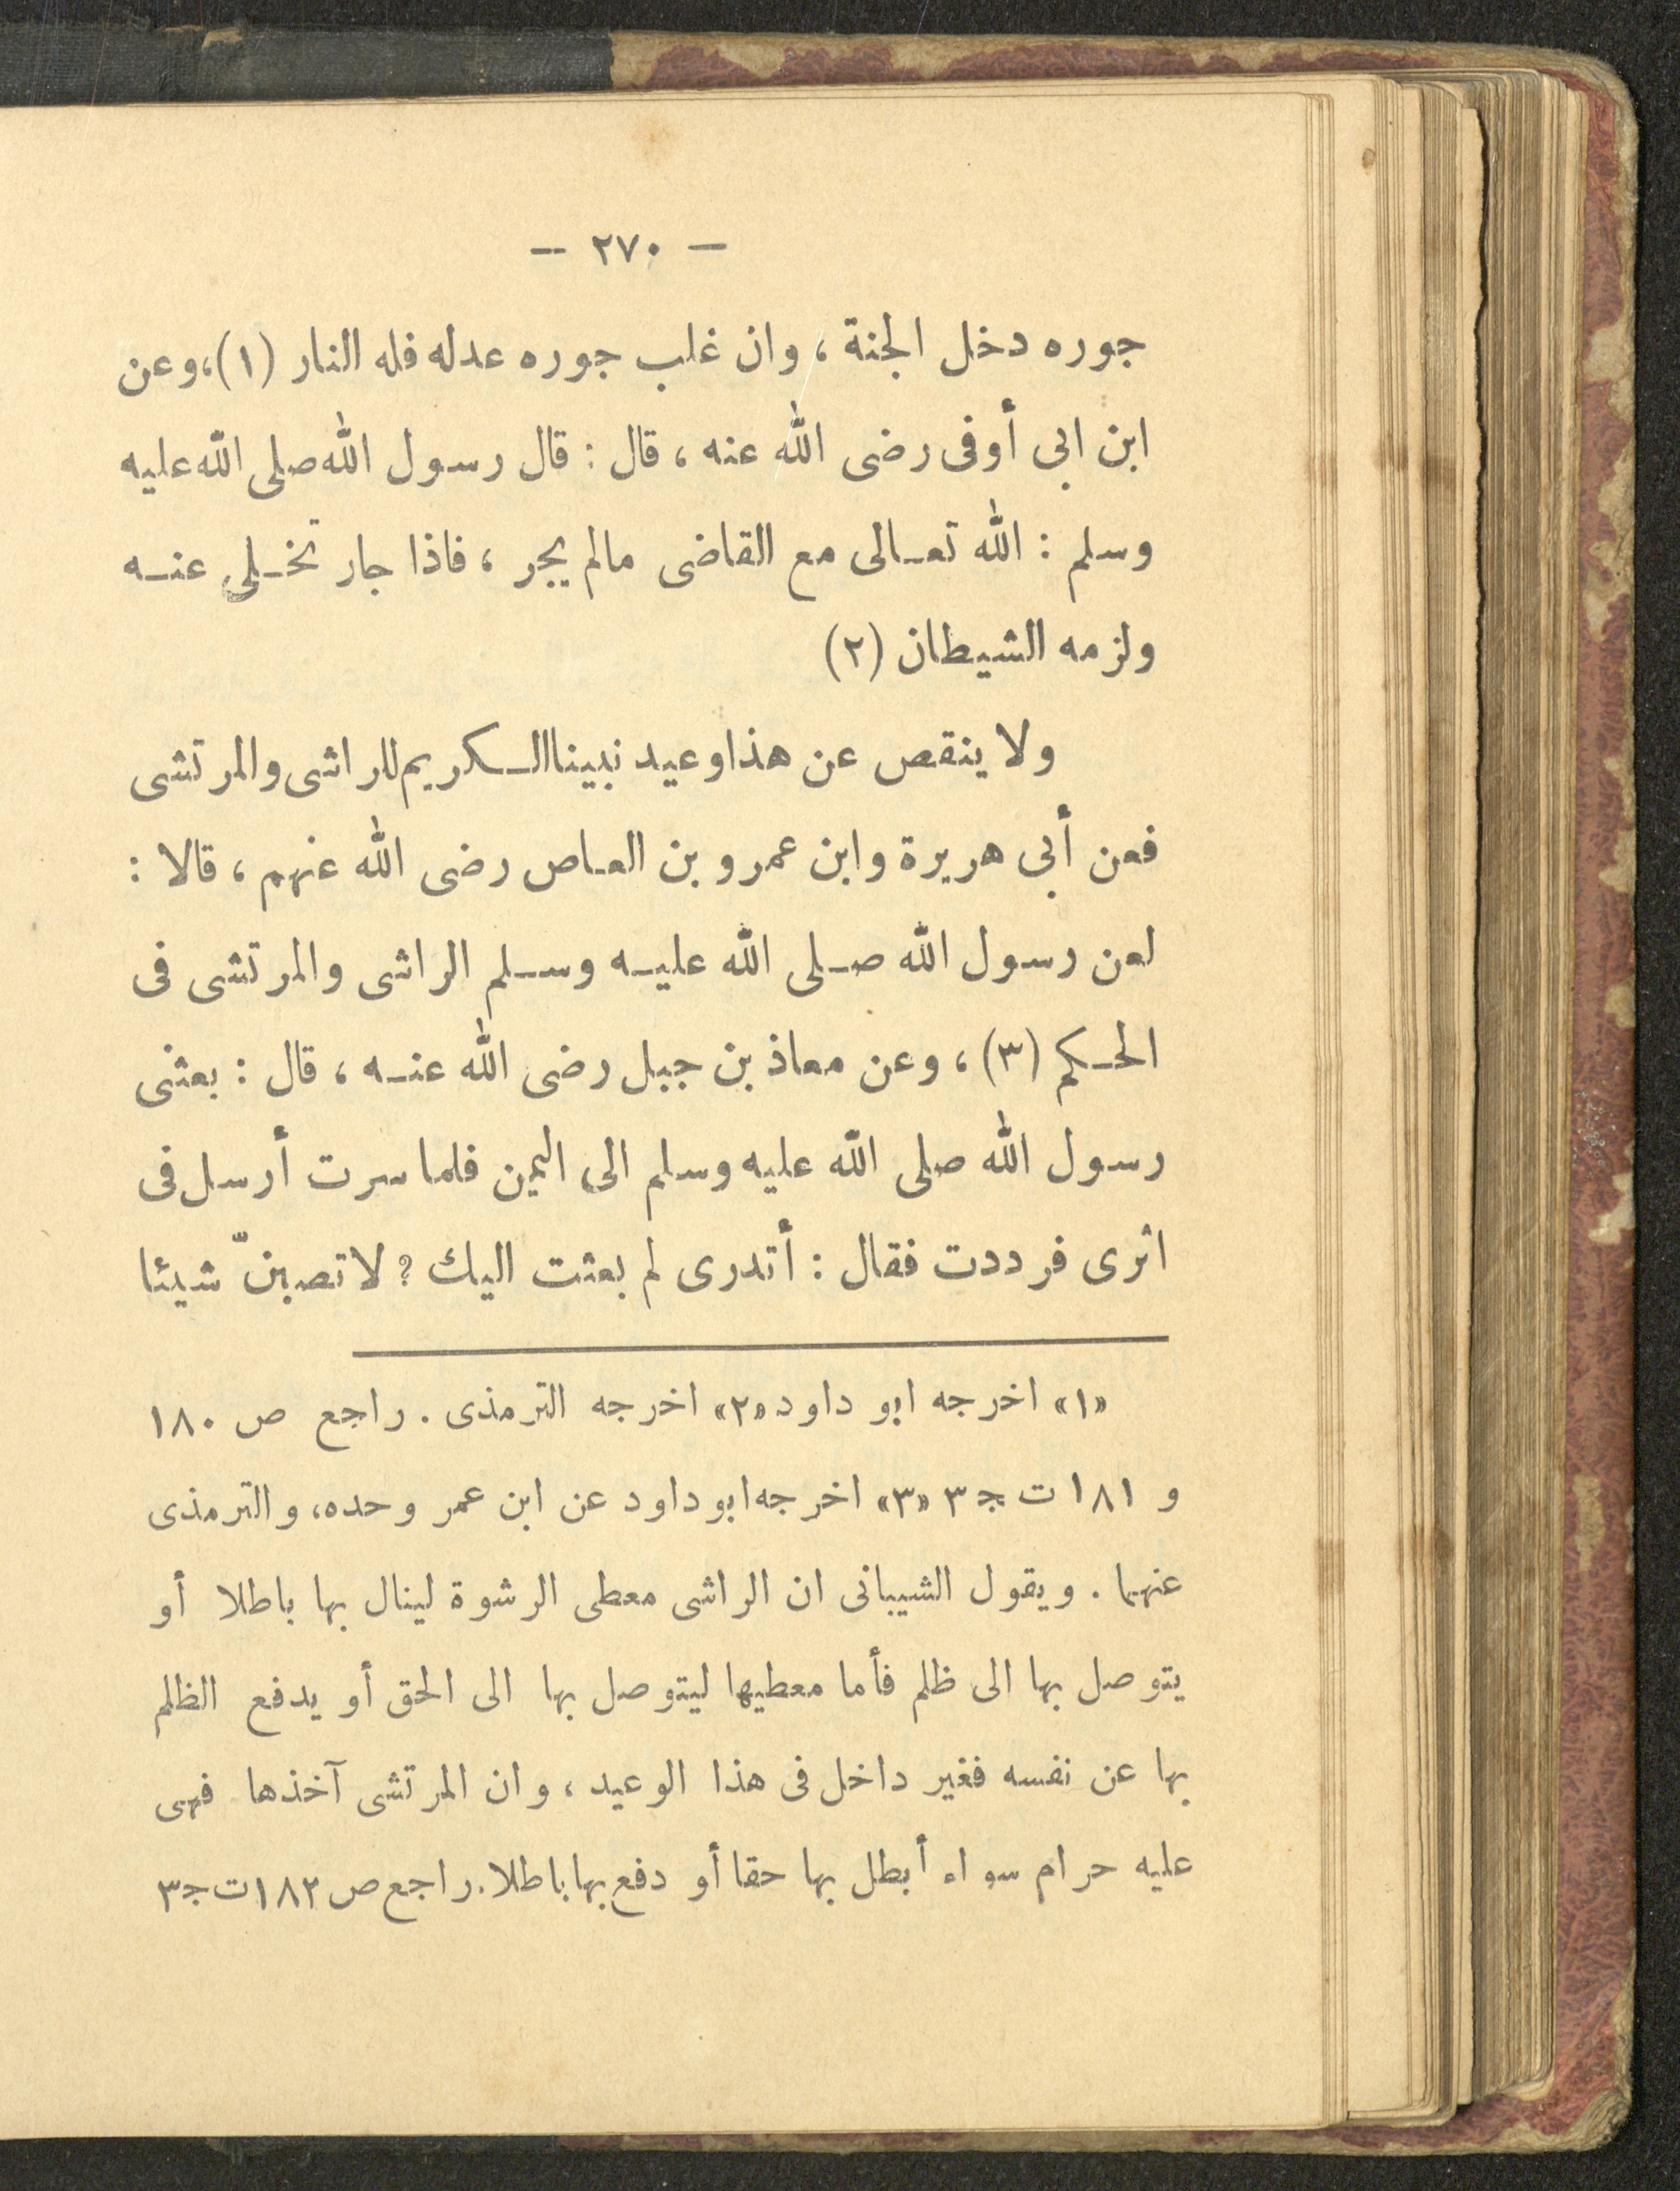 — ٢٧٠ —
جوره دخل الجنة ، وان غلب جوره عدله فله النار (١)، وعن
ابن ابي أوفى رضى الله عنه ، قال : قال رسول الله صلى الله عليه
وسلم : الله تعالى مع القاضى مالم يجر ، فاذا جار تخلى عنه
ولزمه الشيطان (٢)
ولا ينقص عن هذا وعيد نبينا الكريم للراشى والمرتشى
فعن أبي هريرة وابن عمرو بن العاص رضى الله عنهم ، قالا :
لعن رسول الله صلى الله عليه وسلم الراشى والمرتشى فى
الحكم (٣) ، وعن معاذ بن جبل رضى الله عنه ، قال : بعثنى
رسول الله صلى الله عليه وسلم الى اليمن فلما سرت أرسل فى
اثرى فرددت فقال : أتدرى لم بعثت اليك ؟ لا تصبنّ شيئا
«١» اخرجه ابو داود «٢» اخرجه الترمذى . راجع ص ١٨٠
و ١٨١ ت ج ٣ «٣» اخرجه ابو داود عن ابن عمر وحده، والترمذى
عنهما . ويقول الشيبانى ان الراشى معطى الرشوة لينال بها باطلا أو
يتوصل بها الى ظلم فأما معطيها ليتوصل بها الى الحق أو يدفع الظلم
بها عن نفسه فغير داخل فى هذا الوعيد ، وان المرتشى آخذها فهى
عليه حرام سواء أبطل بها حقا أو دفع بها باطلا. راجع ص ١٨٢ ت ج ٣